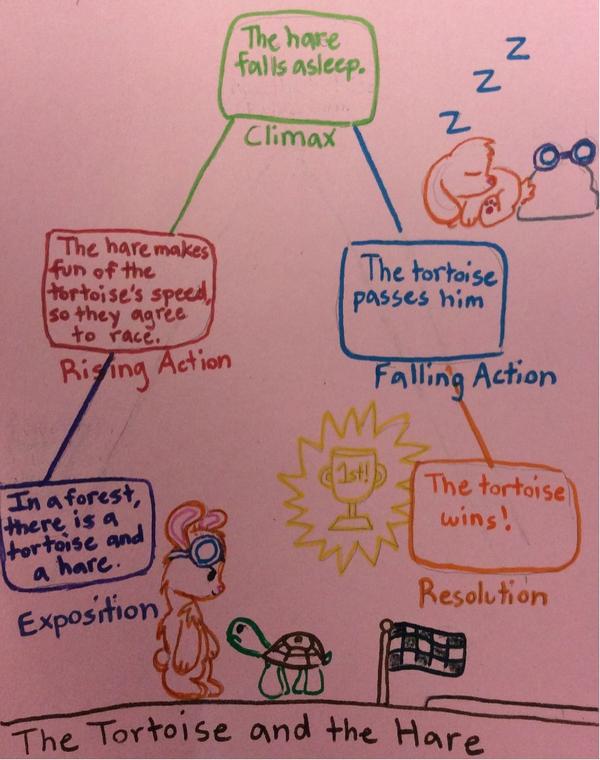 The hare
falls asleep.
Climax
Z
Z
Z
The hare makes
fun of the
tortoise's speed,
so they agree
to race.
Rising Action
The tortoise
passes him
Falling Action
In a forest,
there is a
tortoise and
a hare.
Exposition
1st!
The tortoise
wins!
Resolution
The Tortoise and the Hare